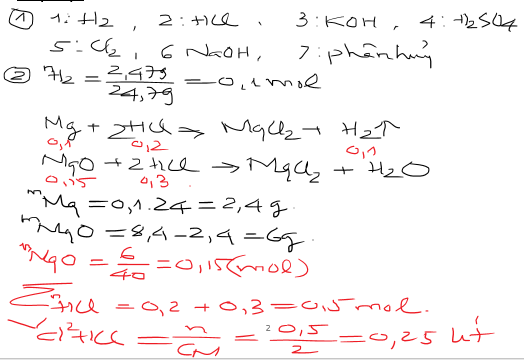 ① 1: H2, 2: HCl, 3: KOH, 4: H2SO4
5: Cl2, 6 NaOH, 7: phân huỷ
② nH2 = 2,479/24,79 = 0,1 mol
Mg + 2HCl → MgCl2 + H2↑
0,1 0,2 0,1
MgO + 2HCl → MgCl2 + H2O
0,15 0,3
mMg = 0,1.24 = 2,4 g.
mMgO = 8,4 - 2,4 = 6g.
nMgO = 6/40 = 0,15 (mol)
ΣnHCl = 0,2 + 0,3 = 0,5 mol.
HCl = n/CM = 0,5/2 = 0,25 lít